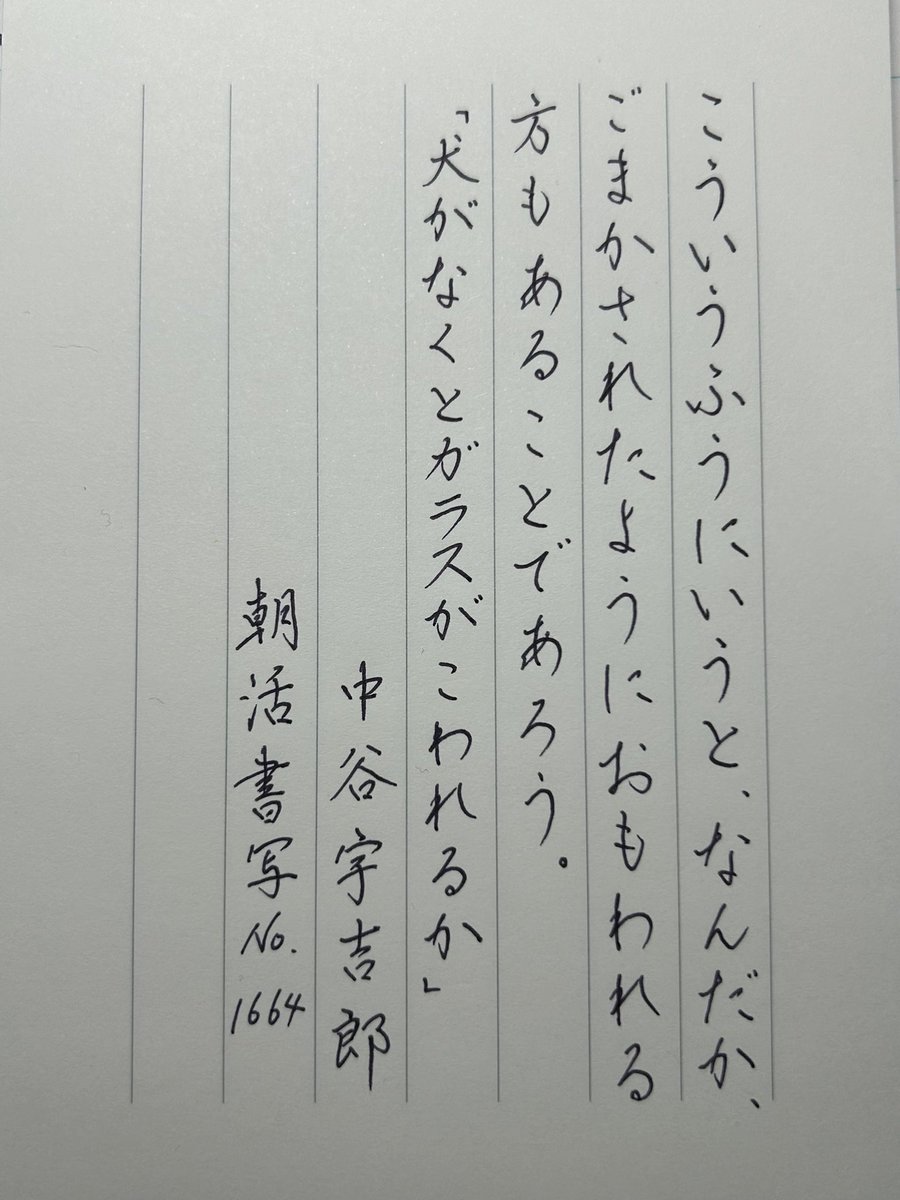 こういうふうにいうと、なんだか、
ごまかされたようにおもわれる
方もあることであろう。
「犬がなくとガラスがこわれるか」
中谷宇吉郎
朝活書写No.1664